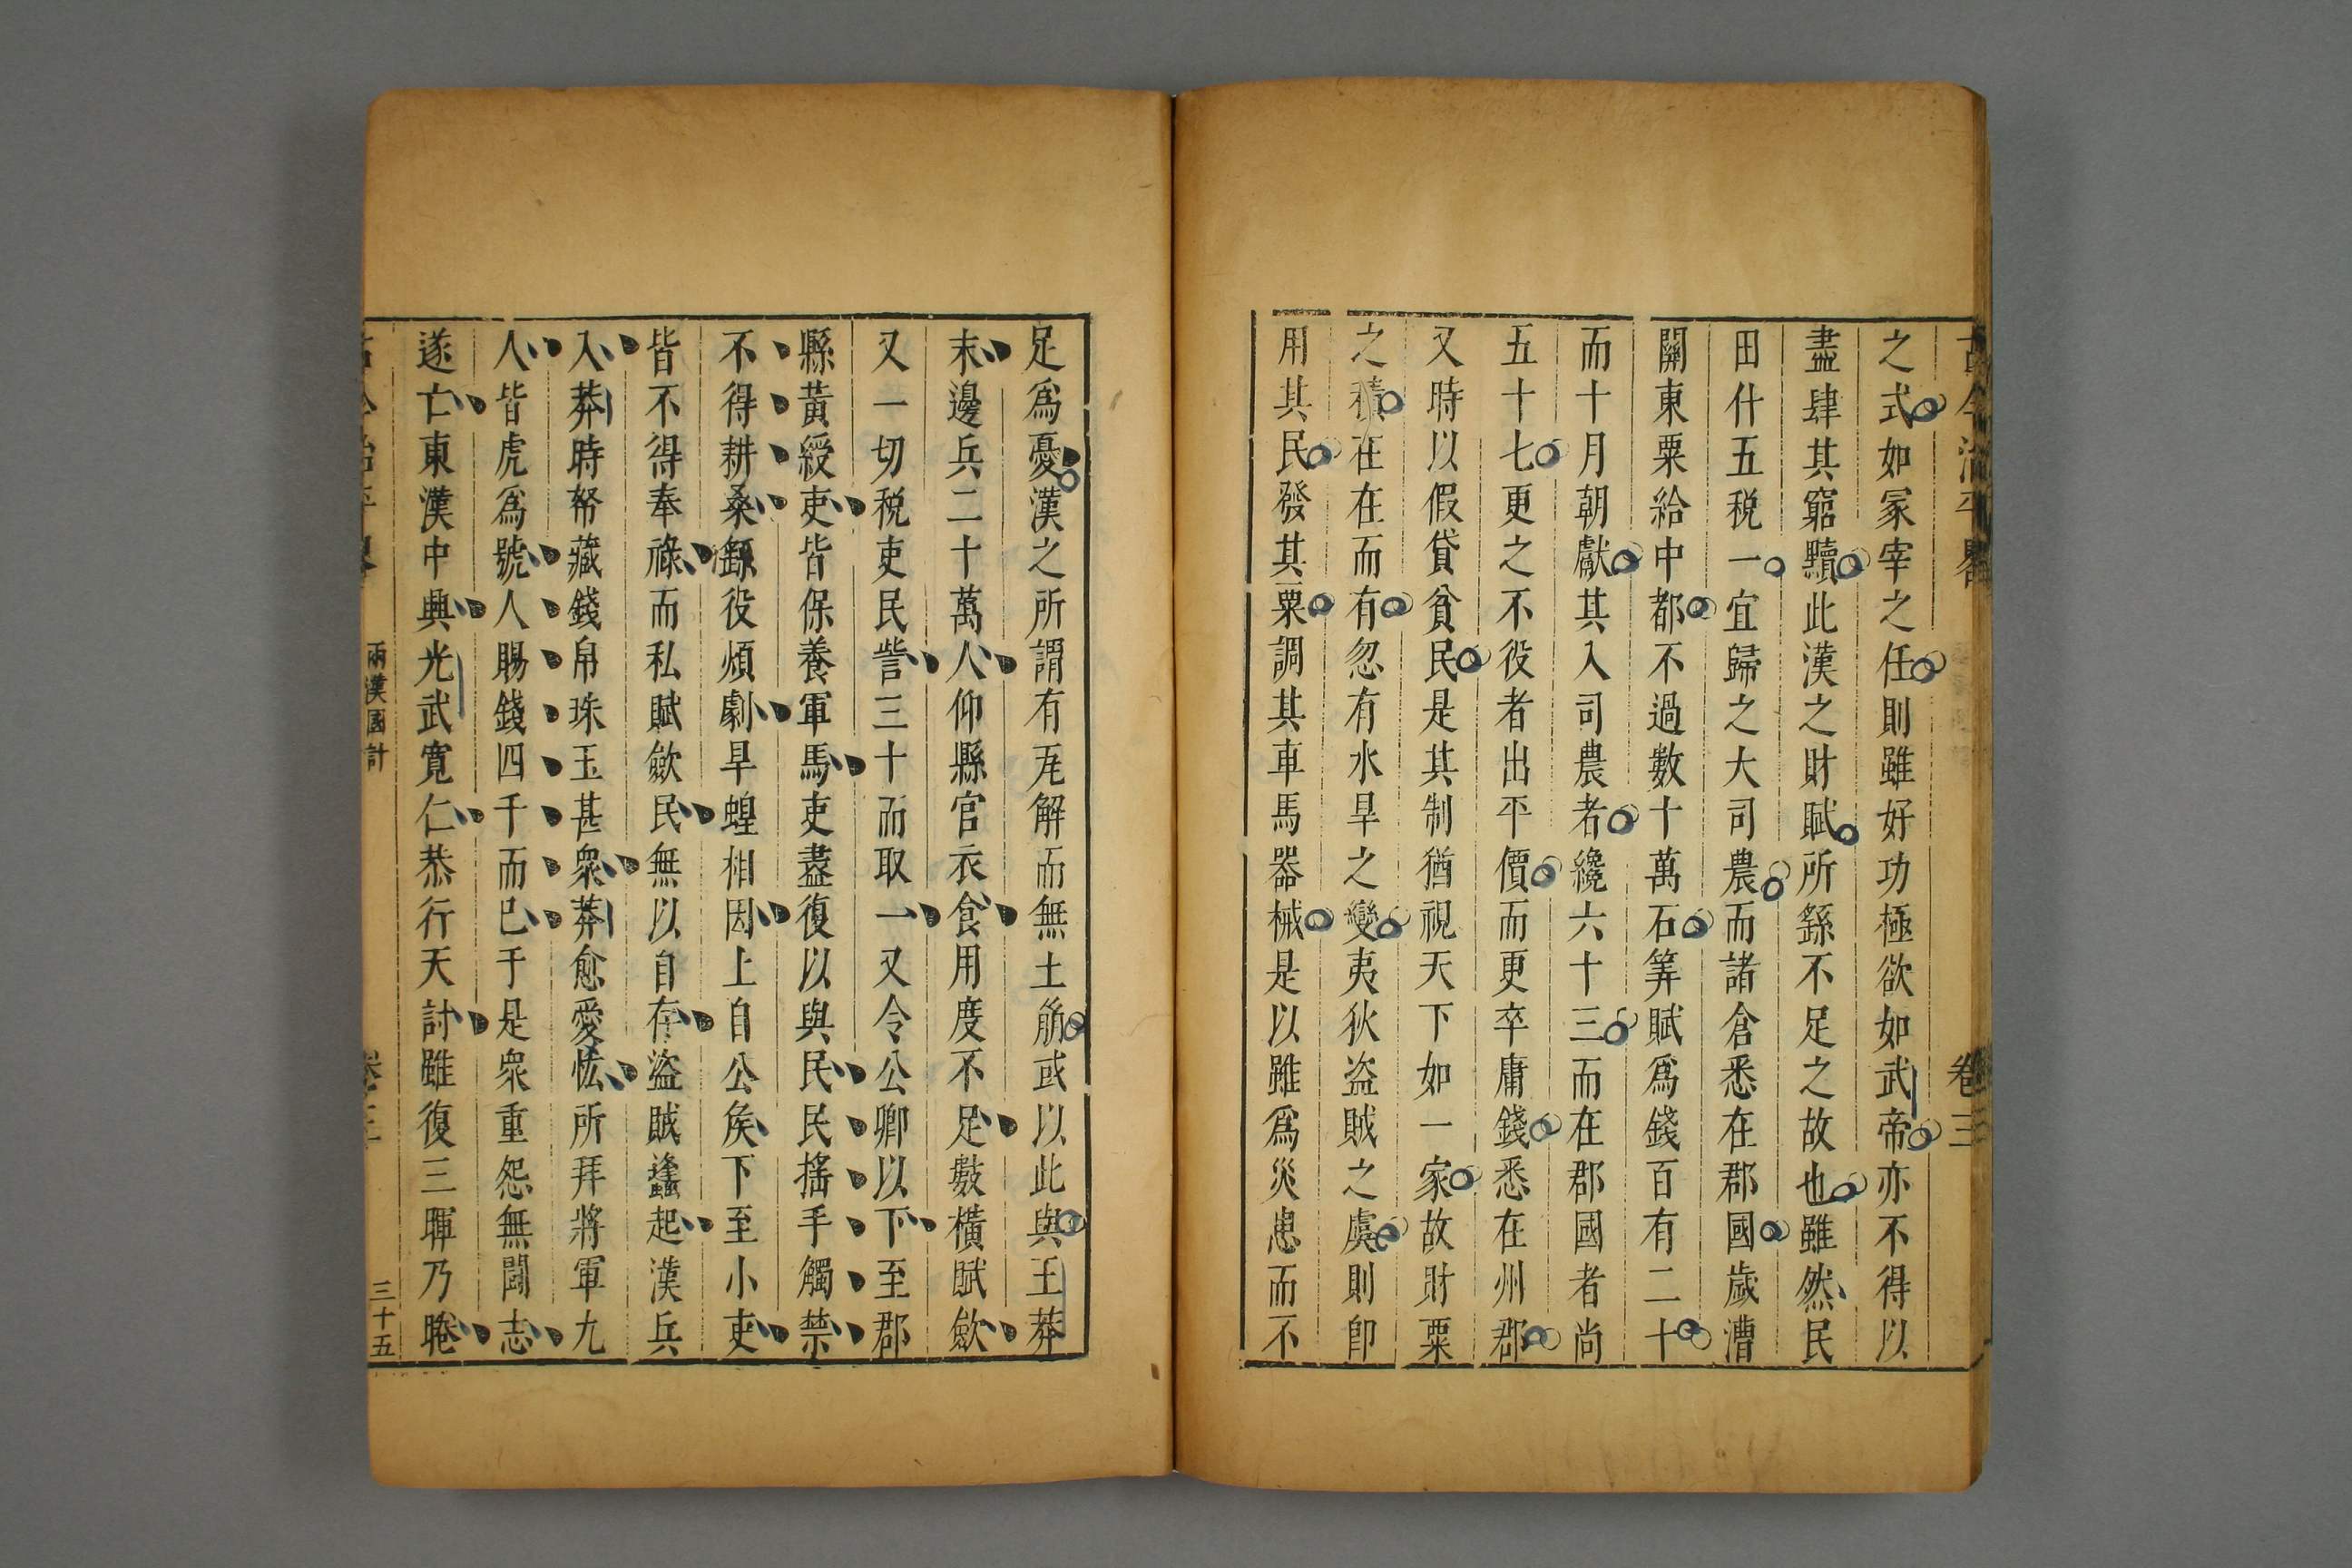 古今治平畧 卷三
之式如冢宰之任則雖好功極欲如武帝亦不得以
盡肆其窮黷此漢之財賦所繇不足之故也雖然民
田什五税一宜歸之大司農而諸倉悉在郡國歲漕
關東粟給中都不過數十萬石筭賦爲錢百有二十
而十月朝獻其入司農者纔六十三而在郡國者尚
五十七更之不役者出平價而更卒庸錢悉在州郡
又時以假貸貧民是其制猶視天下如一家故財粟
之積在在而有忽有水旱之變夷狄盗賊之虞則卽
用其民發其粟調其車馬器械是以雖爲災患而不
足爲憂漢之所謂有瓦解而無土崩或以此與王莽
末邊兵二十萬人仰縣官衣食用度不足數橫賦歛
又一切税吏民訾三十而取一又令公卿以下至郡
縣黃綬吏皆保養軍馬吏盡復以與民民搖手觸禁
不得耕桑繇役煩劇旱蝗相因上自公矦下至小吏
皆不得奉祿而私賦歛民無以自存盜賊蠭起漢兵
入莽時帑藏錢帛珠玉甚衆莽愈愛恡所拜將軍九
人皆虎爲號人賜錢四千而已于是衆重怨無鬪志
遂亡東漢中興光武寛仁恭行天討雖復三暉乃睠
兩漢國計 卷三 三十五